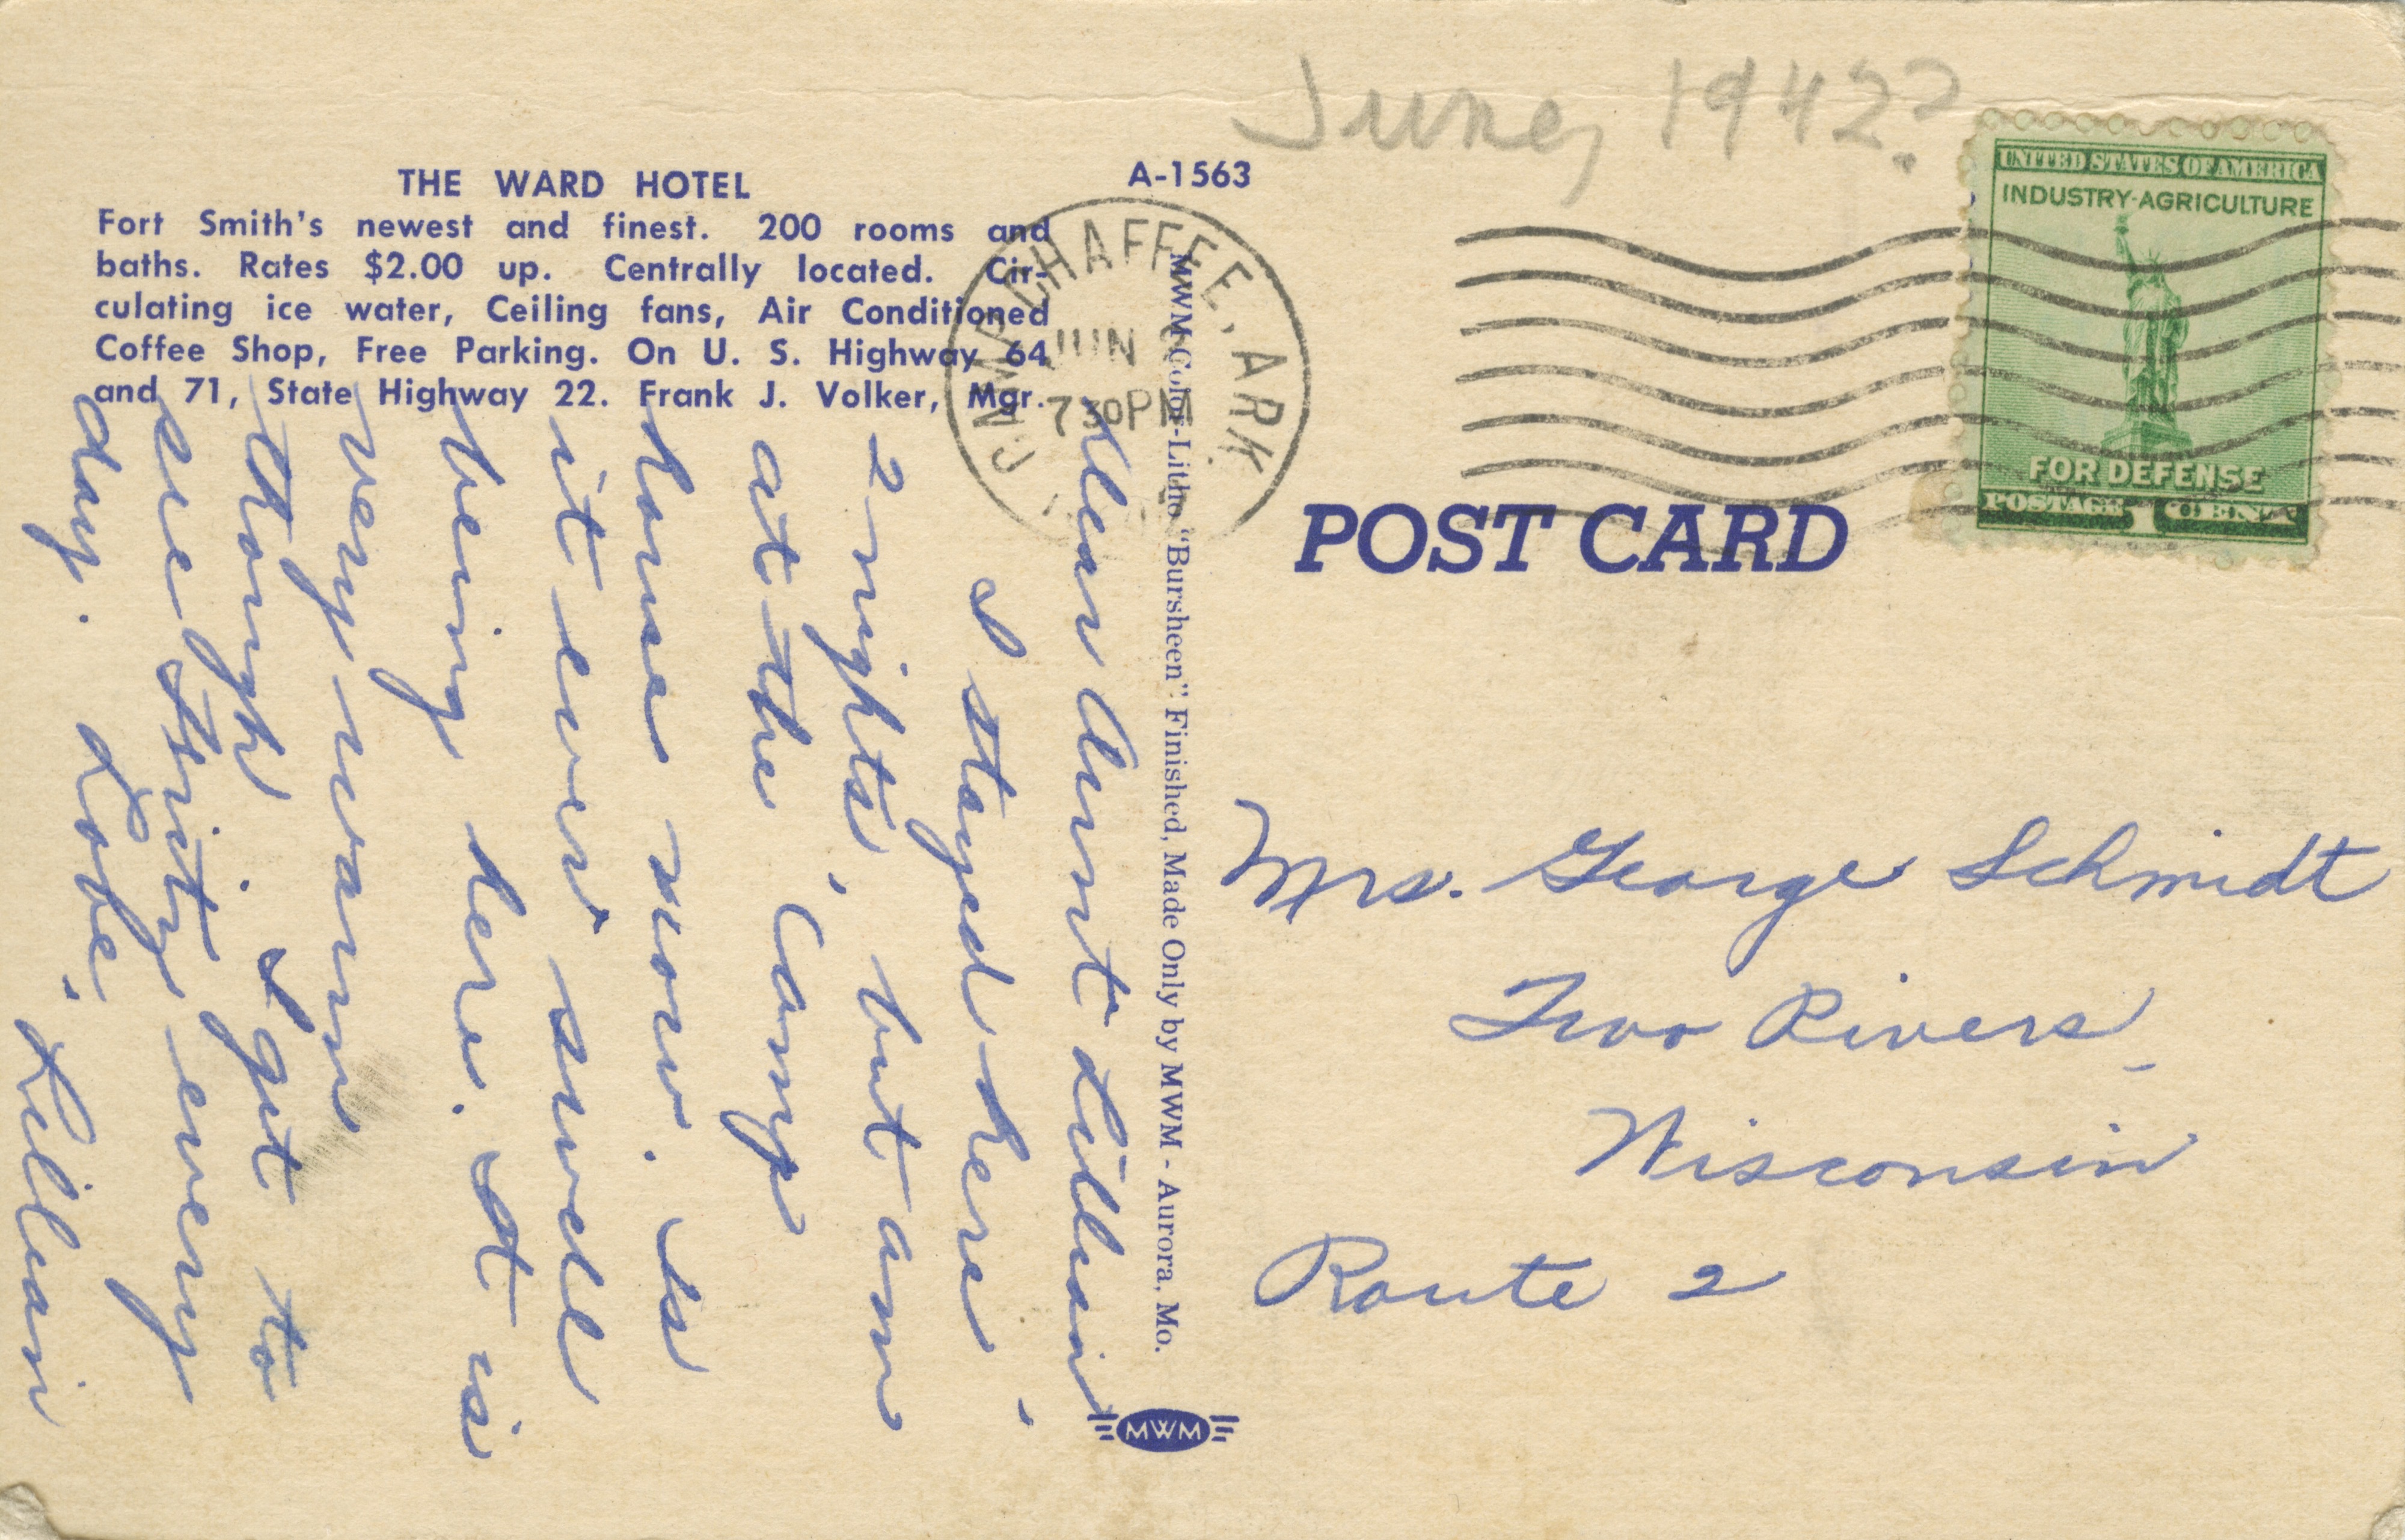 June, 1942?
THE WARD HOTEL
A-1563
Fort Smith's newest and finest. 200 rooms and
baths. Rates $2.00 up. Centrally located. Cir-
culating ice water, Ceiling fans, Air Conditioned
Coffee Shop, Free Parking. On U. S. Highway 64
and 71, State Highway 22. Frank J. Volker, Mgr.
CAMP CHAFFEE, ARK.
JUN
7 30 PM
UNITED STATES OF AMERICA
INDUSTRY-AGRICULTURE
FOR DEFENSE
POSTAGE 1 CENT
POST CARD
Dear Aunt Lillian
I stayed here
2 nights, but am
at the Camp
house now. Is
it ever swell
being here. It is
very warm
though. I get to
see Smitty every
day. Love, Lillian
MWM Color-Litho "Bursheen" Finished, Made Only by MWM - Aurora, Mo.
MWM
Mrs. George Schmidt
Two Rivers,
Wisconsin
Route 2